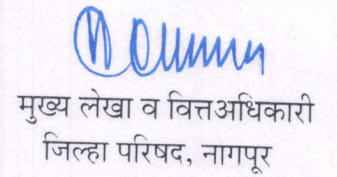 मुख्य लेखा व वित्तअधिकारी
जिल्हा परिषद, नागपूर